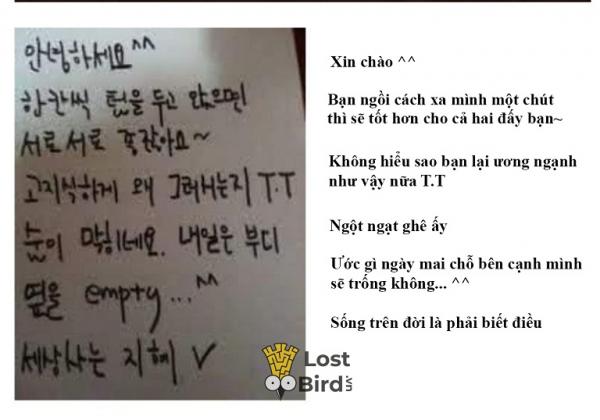 안녕하세요^^
한칸씩 텀을 두고 앉으면
서로서로 좋잖아요~
고지식하게 왜 그러시는지 T.T
숨이 막히네요. 내일은 부디
옆을 empty...^^
세상사는 지혜 V
Xin chào ^^
Bạn ngồi cách xa mình một chút
thì sẽ tốt hơn cho cả hai đấy bạn~
Không hiểu sao bạn lại ương ngạnh
như vậy nữa T.T
Ngột ngạt ghê ấy
Ước gì ngày mai chỗ bên cạnh mình
sẽ trống không... ^^
Sống trên đời là phải biết điều
Lost
Bird